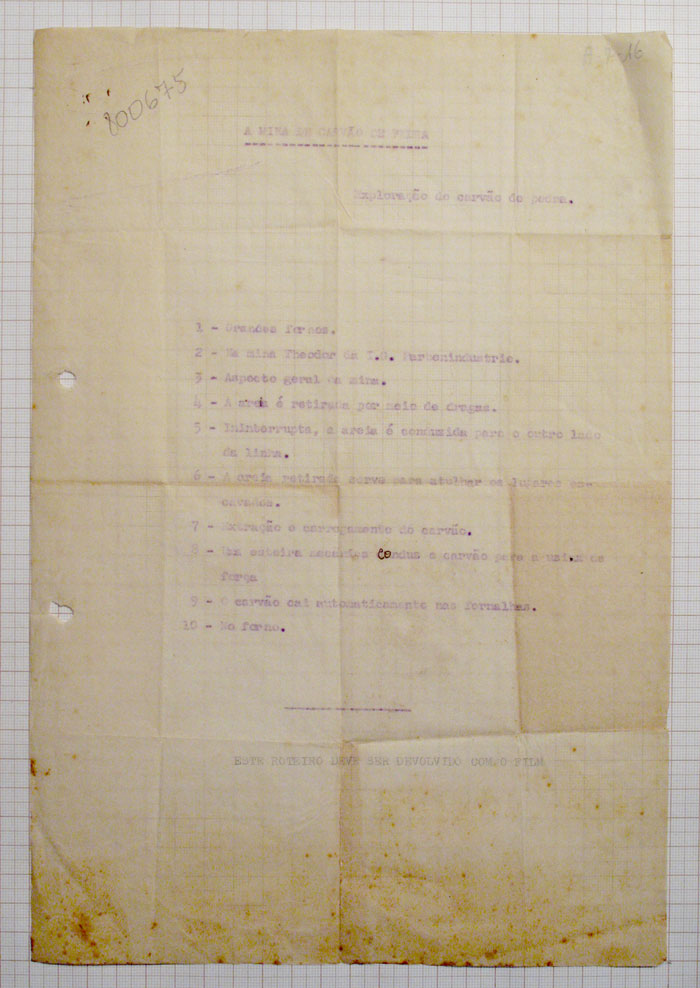 A 7-16
800675
A MINA DE CARVÃO DE PEDRA
Exploração do carvão de pedra.
1 - Grandes fornos.
2 - Na mina Theodor da I.G. Farbenindustrie.
3 - Aspecto geral da mina.
4 - A areia é retirada por meio de dragas.
5 - Ininterrupta, a areia é conduzida para o outro lado
da linha.
6 - A areia retirada serve para atulhar os lugares es-
cavados.
7 - Extração e carregamento do carvão.
8 - Uma esteira mecanica conduz o carvão para a usina de
força
9 - O carvão cai automaticamente nas fornalhas.
10 - No forno.
ESTE ROTEIRO DEVE SER DEVOLVIDO COM O FILM